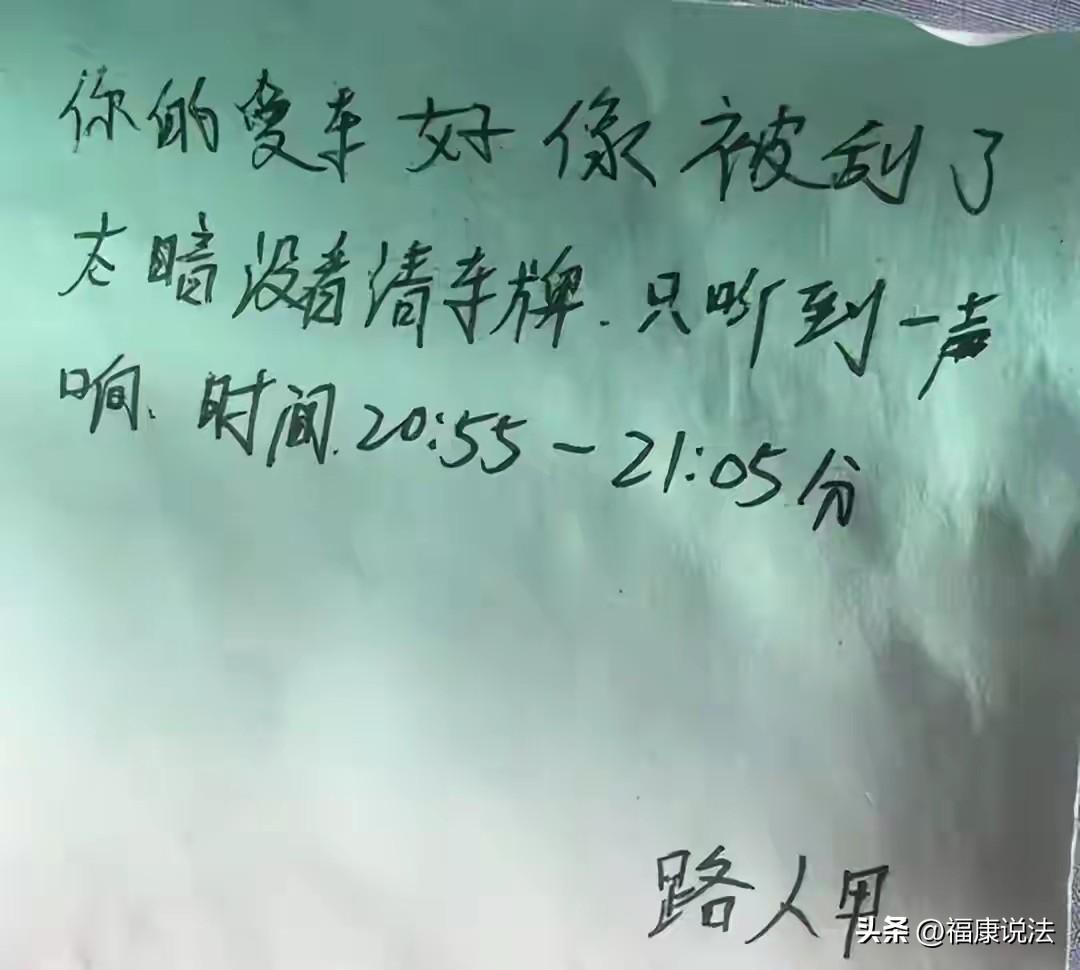 你的爱车好像被刮了
太暗没看清车牌.只听到一声
响、时间.20:55-21:05分
路人甲
头条 @福康说法